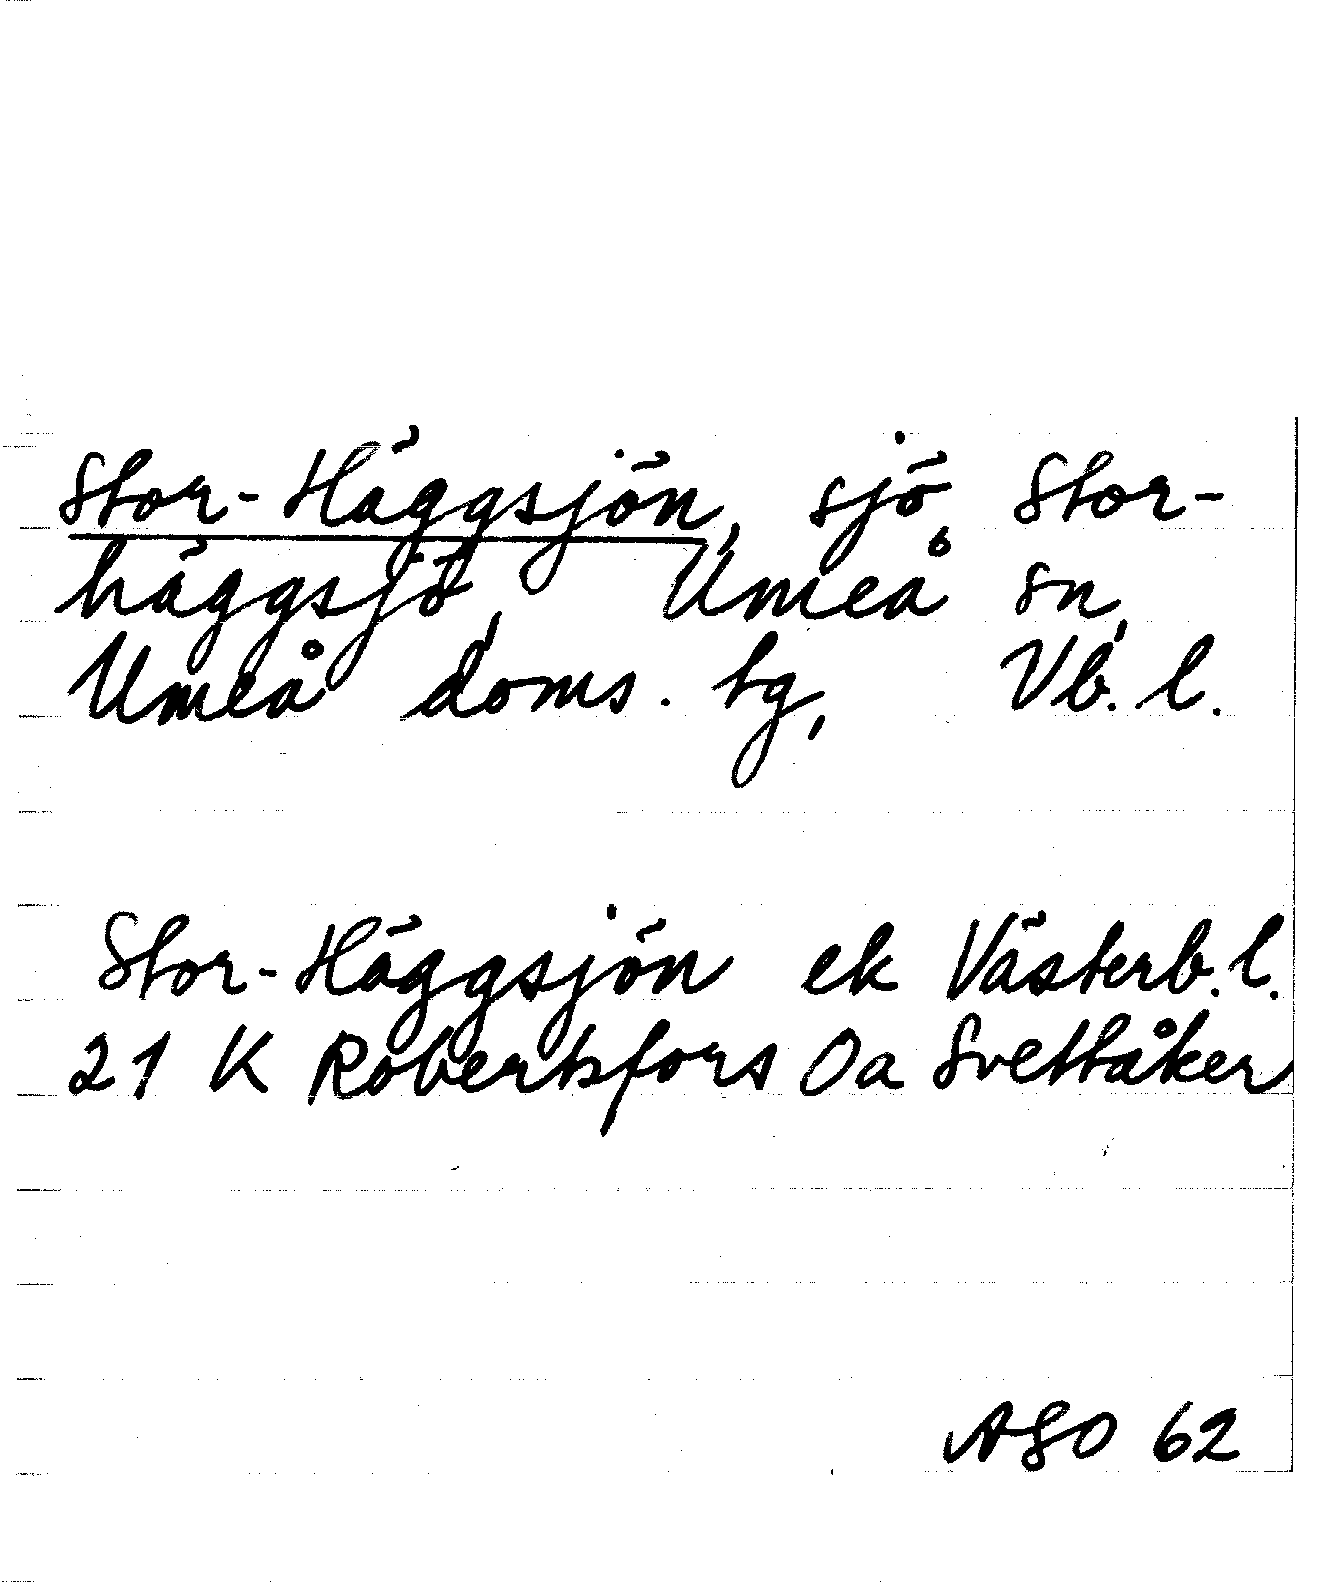 Stor-Häggsjön, sjö, Stor-
häggsjö, Umeå sn,
Umeå doms. tg, Vb. l.
Stor-Häggsjön ek Västerb. l.
21 K Robertsfors Oa Svettåker
ASO 62